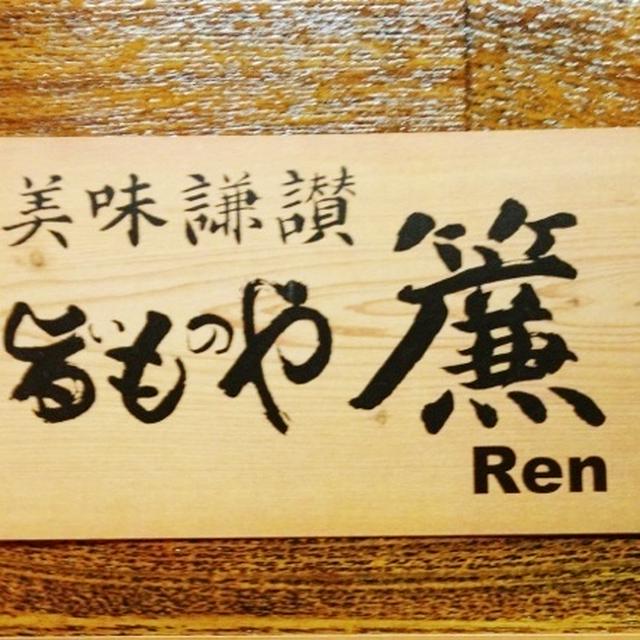 美味謙讃
旨いものや 簾
Ren